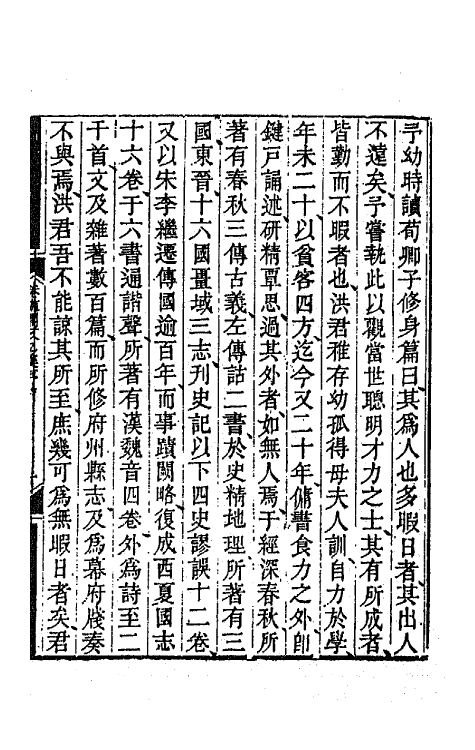 予幼時讀荀卿子修身篇曰其爲人也多暇日者其出人
不遠矣予嘗執此以觀當世聰明才力之士其有所成者
皆勤而不暇者也洪君稚存幼孤得母夫人訓自力於學
年未二十以貧客四方迄今又二十年傭書食力之外卽
鍵戸誦述研精覃思過其外者如無人焉于經深春秋所
著有春秋三傳古義左傳詁二書於史精地理所著有三
國東晉十六國畺域三志刊史記以下四史謬誤十二卷
又以宋李繼遷傳國逾百年而事蹟闕略復成西夏國志
十六卷于六書通諧聲所著有漢魏音四卷外爲詩至二
千首文及雜著數百篇而所修府州縣志及爲幕府牋奏
不與焉洪君吾不能諒其所至庶幾可爲無暇日者矣君